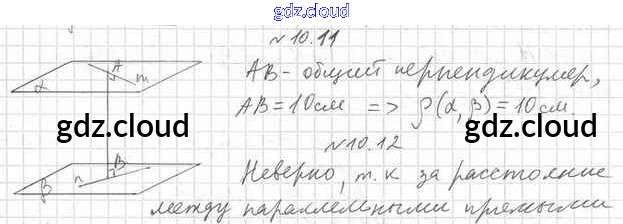 gdz.cloud
№ 10.11
A m α
AB - общий перпендикуляр,
AB = 10 см => ρ(α, β) = 10 см.
gdz.cloud gdz.cloud
№ 10.12
B n β
Неверно, т.к за расстояние
между параллельными прямыми